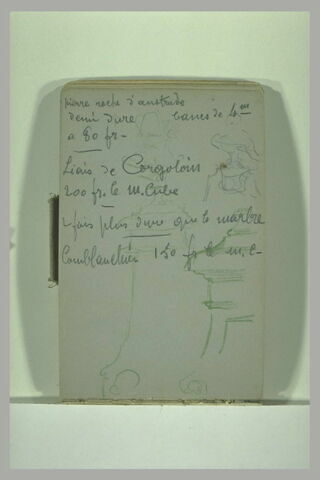 pierre roche d'
demi dure bancs de
a 80 fr-
Liais de Corgoloin
200 fr. le m. Cube
2 fois plus dure que le marbre
Comblanchien 150 fr le m. C-